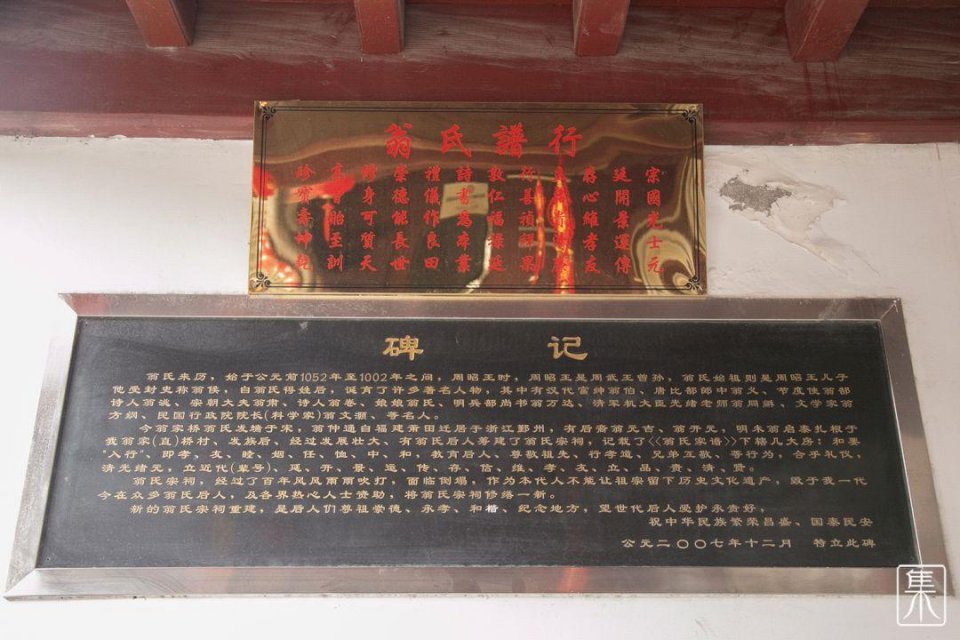 翁氏譜行
宗國光士元
延開景運傳
存心維孝友
行善禎祥果
敦仁福祿延
詩書為本業
禮儀作良田
崇德能長世
身可質天
至訓
碑记
翁氏来历，始于公元前1052年至1002年之间，周昭王时，周昭王是周武王曾孙，翁氏始祖则是周昭王儿子
他受封史称翁侯，自翁氏得姓后，诞育了许多著名人物，其中有汉代富绅翁伯、唐比部郎中翁义、节度使翁郜
诗人翁诞、宋朝大夫翁肃、诗人翁卷、娘娘翁氏、明兵部尚书翁万达、清军机大臣光绪老师翁同龢、文学家翁
方纲、民国行政院院长(科学家)翁文灏、等名人。
今翁家桥翁氏发端于宋，翁仲通自福建莆田迁居于浙江鄞州，有后裔翁元吉、翁开元，明末翁吉泰扎根于
我翁家(直)桥村、发族后、经过发展壮大、有翁氏后人筹建了翁氏宗祠，记载了《《翁氏家谱》下辖几大房：和要
“入行”、即孝、友、睦、姻、任、恤、中、和，教育后人、尊敬祖先、行孝道、兄弟互敬、善行为，合乎礼仪，
清光绪元，立近代(辈号)、延、开、景、运、传、存、信、维、孝、友、立、品、贵、清、贤。
翁氏宗祠，经过了百年风风雨雨吹打，面临倒塌，作为本代人不能让祖宗留下历史文化遗产，毁于我一代
今在众多翁氏后人，及各界热心人士赞助，将翁氏宗祠修缮一新。
新的翁氏宗祠重建，是后人们尊祖崇德、永孝、和楷、纪念地方，望世代后人爱护永贵好，
祝中华民族繁荣昌盛、国泰民安
公元二〇〇七年十二月 特立此碑